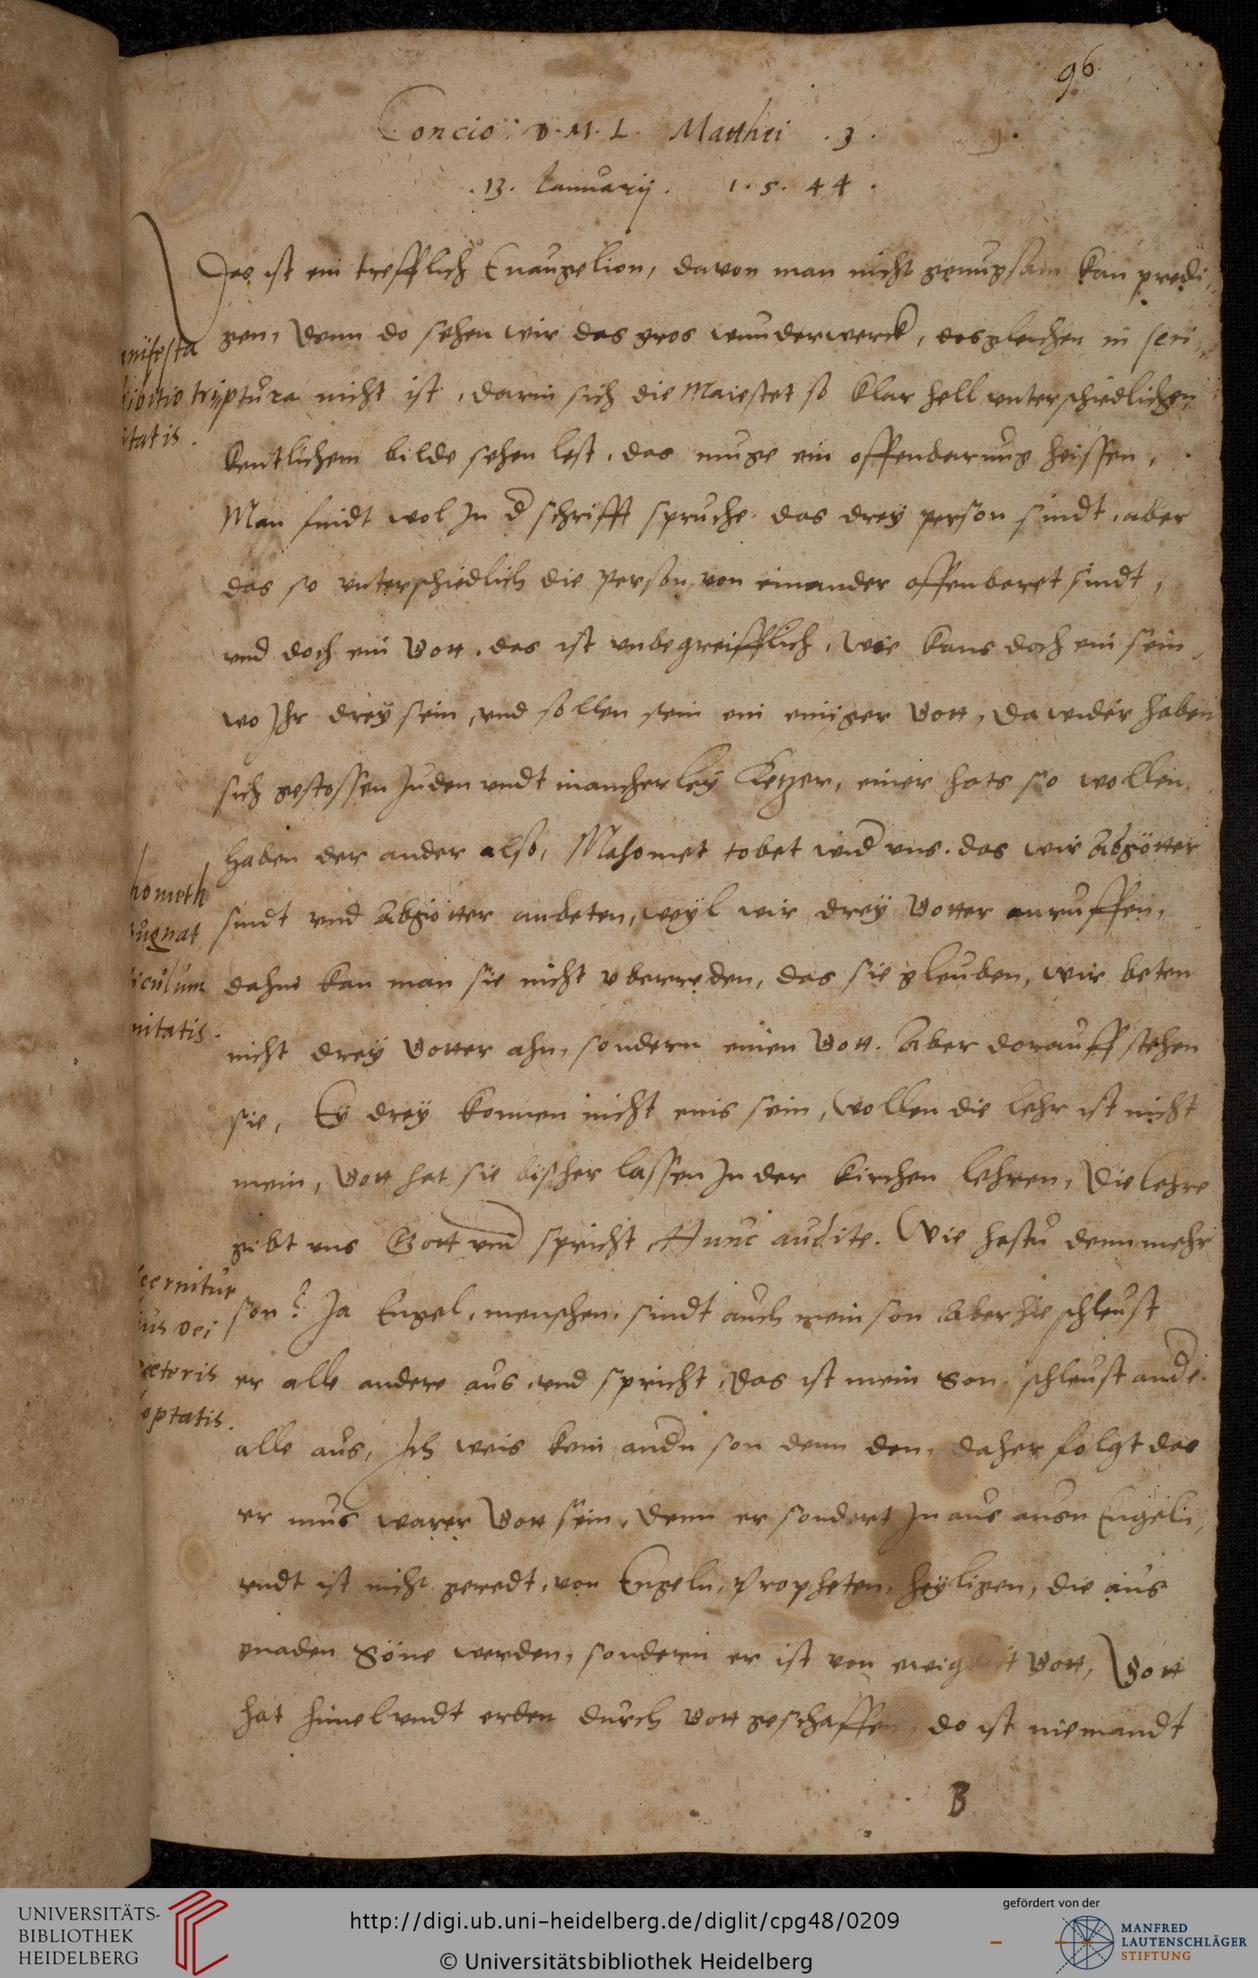 96
Concio D. M. L. Matthei . 3 .
. 13. Januarij . 1 . 5 . 44 .
Das ist ein trefflich Euangelion, davon man nicht genugsam kan predi-
gen, Denn do sehen wir das gros wunderwerck, desgleichen in scri-
ptura nicht ist, darin sich die Maiestet so klar hell vnterschiedlichen
kentlichem bilde sehen lest, das muge ein offenbarung heissen,
Man findt wol Jn d schrifft spruche das drey person sindt, aber
das so vnterschiedlich die Person, von einander offenbaret sindt,
vnd doch ein Gott, das ist vnbegreifflich, Wie kans doch ein sein,
wo Jhr drey sein, vnd sollen sein ein einiger Gott, Da wider haben
sich gestossen Juden vndt mancherley Ketzer, einer hats so wollen
haben der ander also, Mahomet tobet wid vns, das wir Abgötter
sindt vnd Abgötter anbeten, weyl wir drey Gotter anruffen,
dahin kan man sie nicht vberreden, das sie gleuben, wir beten
nicht drey Gotter ahn, sondern einen Gott. Aber dorauff stehen
sie, Ey drey konnen nicht eins sein, Wollen die lehr ist nicht
mein, Gott hat sie bisher lassen Jn der Kirchen lehren, Die lehre
gibt vns Gott vnd spricht Hunc audite. Wie hastu denn mehr
son? Ja Engel, menschen, sindt auch mein son, Aber hie schleust
er alle andere aus, vnd spricht, Das ist mein Son, schleust ande
alle aus, Ich weis kein andn son denn den, daher folgt das
er mus warer Gott sein, Denn er sondert Jn aus ausn Engeln,
vndt ist nicht geredt, von Engeln, Propheten, heyligen, die aus
gnaden Söne werden, sondern er ist von ewigkeit Gott, Gott
hat himel vndt erden durch Gott geschaffen, do ist niemandt
B
nifesta
itatis .
hometh
ugnat
iculum
nitatis .
cernitur
ius Dei
ectoris
optatis .
UNIVERSITÄTS-
BIBLIOTHEK
HEIDELBERG
http://digi.ub.uni-heidelberg.de/diglit/cpg48/0209
© Universitätsbibliothek Heidelberg
gefördert von der
MANFRED
LAUTENSCHLÄGER
STIFTUNG